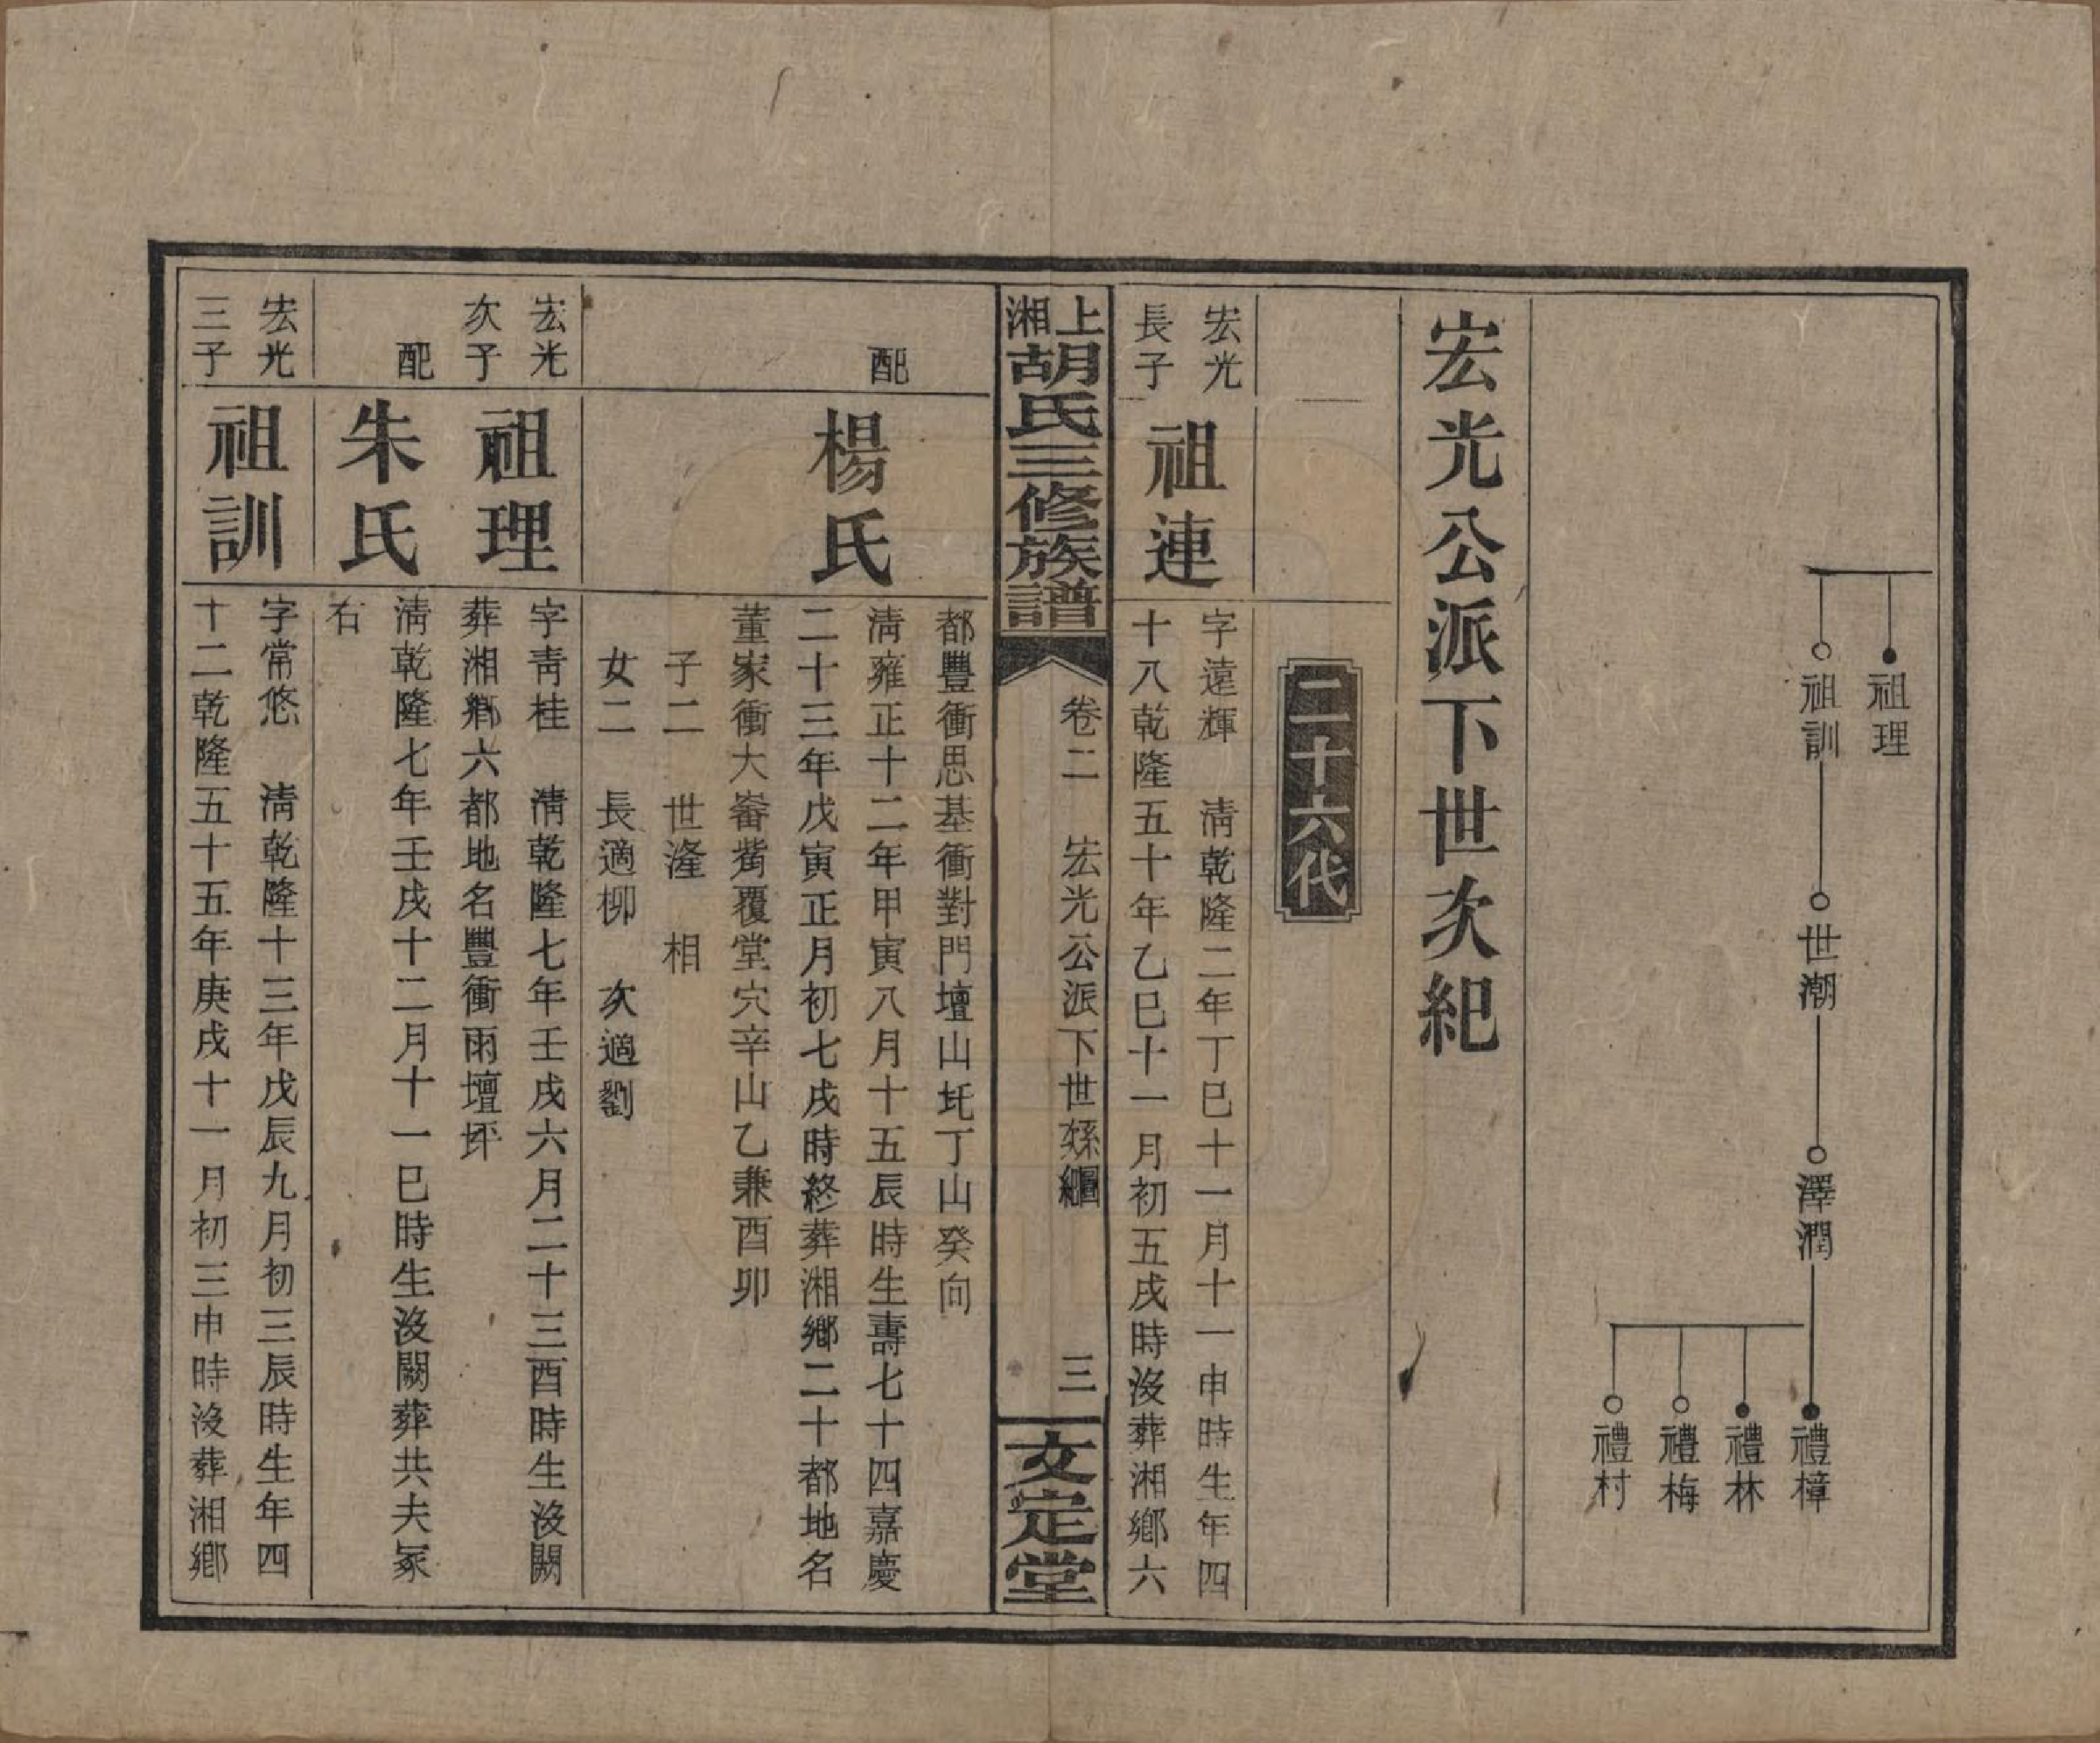 祖理
祖訓 世潮 澤潤
禮樟
禮林
禮梅
禮村
宏光公派下世次紀
二十六代
宏光
長子
祖連
字遠輝 清乾隆二年丁巳十一月十一申時生年四
十八乾隆五十年乙巳十一月初五戌時沒葬湘鄉六
上湘胡氏三修族譜
卷二 宏光公派下世系 三
文定堂
都豐衝思基衝對門壇山圫丁山癸向
配
楊氏
清雍正十二年甲寅八月十五辰時生壽七十四嘉慶
二十三年戊寅正月初七戌時終葬湘鄉二十都地名
董家衝大崙覆堂穴辛山乙兼酉卯
子二 世漋 相
女二 長適柳 次適劉
宏光
次子
祖理
字青桂 清乾隆七年壬戌六月二十三酉時生沒闕
葬湘鄉六都地名豐衝雨壇坪
配
朱氏
清乾隆七年壬戌十二月十一巳時生沒闕葬共夫冢
右
宏光
三子
祖訓
字常悠 清乾隆十三年戊辰九月初三辰時生年四
十二乾隆五十五年庚戌十一月初三申時沒葬湘鄉